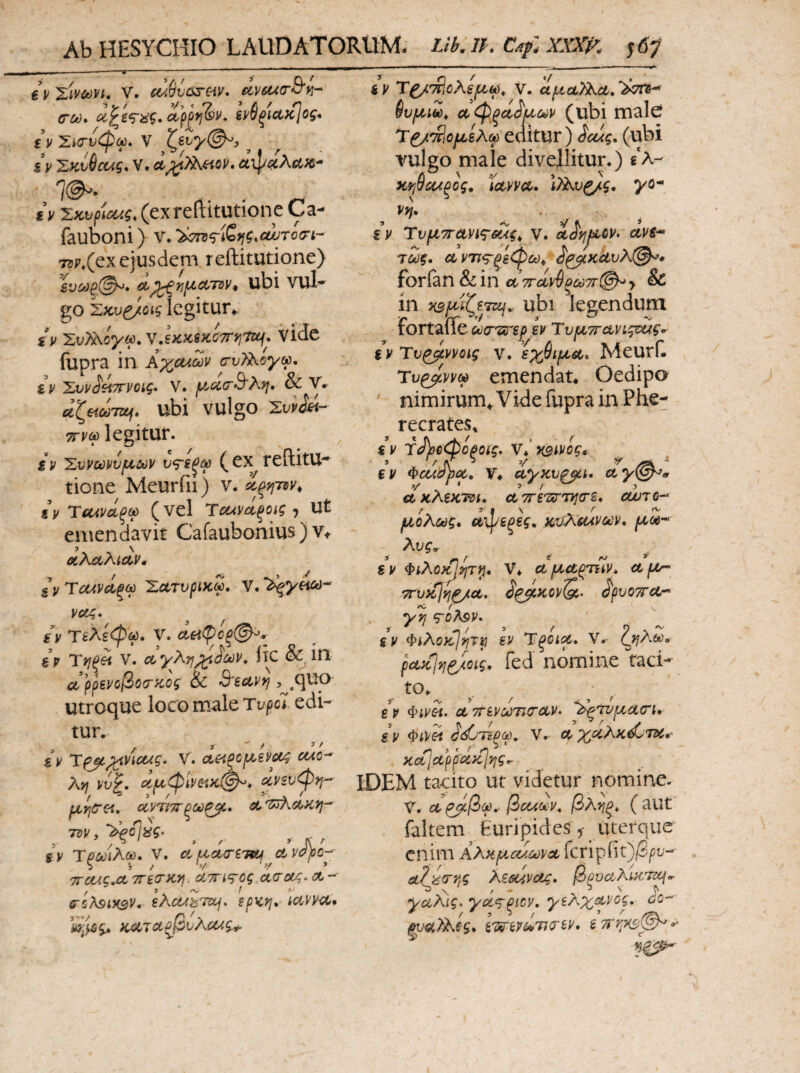 Ab HESYCHIO LAUDATORUM. Lib. II. Cap. XXXV. 567
ἐν Σίνωνι. v. αἰθύσσειν. ἀναισθή-
σω. ἀξέστους. ἄρρητον. ἐνθρίακτος.
ἐν Σισύφῳ. v ζεύγ(ος),
ἐν Σκύθαις. v. ἀχίλλειον. ἀψάλακ-
τ(ος).
ἐν Σκυρίαις. (ex restitutione Ca-
sauboni) v. ἀποστίβης. αὐτόσι-
τον. (ex ejusdem restitutione)
ἔνωρ(ος). ἀχρήματον. ubi vul-
go Σκυρίοις legitur.
ἐν Συλλόγῳ. v. ἐκκεκόπηται. vide
supra in Ἀχαιῶν συλλόγῳ.
ἐν Συνδείπνοις. v. μάσθλη. & v.
ἀζειῶται. ubi vulgo Συνδεί-
πνῳ legitur.
ἐν Συνωνύμων ὑστέρῳ (ex restitu-
tione Meursii) v. ἄρητον.
ἐν Ταινάρῳ (vel Ταινάροις, ut
emendavit Casaubonius) v.
ἀλαλίαν.
ἐν Ταινάρῳ Σατυρικῷ. v. ἐργείω-
νας.
ἐν Τελέφῳ. v. ἀείφορ(ος).
ἐν Τηρεῖ v. ἀγληχίδων. sic & in
ἀρρενοβοσκος & θεανή, quo
utroque loco male Τυροῖ edi-
tur.
ἐν Τραχινίαις. v. ἀειρομένας αἰό-
λη νύξ. ἀμφίνεικ(ος). ἀνευφη-
μήσει. ἀντίπρωρα. ἀπλάκη-
τον, βροτούς.
ἐν Τρωΐλῳ. v. ἀμάσεται ἀνδρό-
παις. ἀπέσκη. ἄπιστος. ἄσαις. ἀ-
στόλικον. ἐλαιοῦται. ἐρκη. ἰαννα.
καταρβύλαις.
ἐν Τριπτολέμῳ. v. ἀμαλλα. ἀπο-
θυμίῳ. ἀφράσμων (ubi male
Τριπτομέλῳ editur) δαΐς. (ubi
vulgo male divellitur.) ἐλ-
κηθαιρός. ἰαννα. ἰλλυρίς. γο-
νή.
ἐν Τυμπανισταῖς. v. ἀδήμον. ἀνσ-
τώς. ἀντιστρέφω. δράκαυλ(ος).
forsan & in ἀπάνθρωπ(ος), &
in κομίζεται. ubi legendum
fortasse ὥσπερ ἐν Τυμπανισταῖς.
ἐν Τυράννοις v. ἔχθιμα. Meurs.
Τυράννῳ emendat. Oedipo
nimirum. Vide supra in Phe-
recrates.
ἐν Ὑδροφόροις. v. κοινός.
ἐν Φαίδρᾳ. v. ἄγκυραι. ἄγ(ος).
ἄκλεκτοι. ἀπέπτησε. αὐτο-
μόλως. ἀψερές. κυλαίνων. μω-
λυς.
ἐν Φιλοκτήτῃ. v. ἁμαρτεῖν. ἀμ-
πυκτήρια. δράκοντα. δρυοπα-
γῆ στόλον.
ἐν Φιλοκτήτῃ ἐν Τροίᾳ. v. ζηλῶ.
ῥακτηρίοις. sed nomine taci-
to.
ἐν Φινεῖ. ἀπενώτισαν. ἀρτύμασι.
ἐν Φινεῖ δευτέρῳ. v. ἀχάλκευτα.
καταρράκτης.
IDEM tacito ut videtur nomine.
v. ἀράβῳ. βαιών. βλῆρ. (aut
saltem Euripides, uterque
enim Ἀλκμαίωνα scripsit) βρυ-
αζούσης λεαίνας. βρυαλίκται.
γυαλις. γάστριον. γέλχανος. δο-
ρυαλλες. ἐπενώτισεν. ἐπηκο(ος).